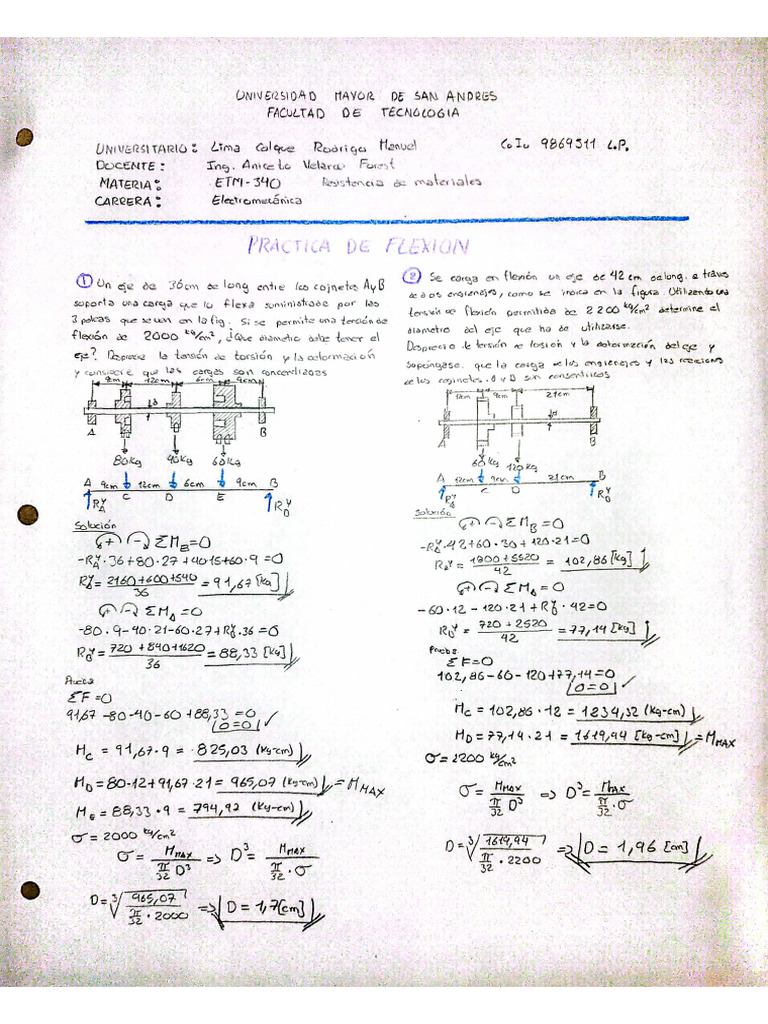 UNIVERSIDAD MAYOR DE SAN ANDRES
FACULTAD DE TECNOLOGIA
UNIVERSITARIO: Lima Colque Rodrigo Manuel C.I. 9869311 L.P.
DOCENTE: Ing. Aniceto Velarde Forest
MATERIA: ETM-340 Resistencia de materiales
CARRERA: Electromecánica
PRACTICA DE FLEXION
① Un eje de 36cm de long entre los cojinetes A y B
soporta una carga que lo flexa suministrada por las
3 poleas que se ven en la fig. Si se permite una tensión de
flexión de 2000 kg/cm², ¿Que diametro debe tener el
eje? Desprecie la tensión de torsión y la deformación
y considere que las cargas son concentradas
9cm 12cm 6cm 9cm
d
A B
80kg 40kg 60kg
A 9cm 12cm 6cm 9cm B
C D E
R_A^y R_B^y
Solución
(+) (-) ΣM_B=0
-R_A^y·36+80·27+40·15+60·9=0
R_A^y = (2160+600+540)/36 = 91,67[kg]
(+) (-) ΣM_A=0
-80·9-40·21-60·27+R_B^y·36=0
R_B^y = (720+840+1620)/36 = 88,33[kg]
Prueba
ΣF=0
91,67-80-40-60+88,33=0
0=0 ✓
M_C = 91,67·9 = 825,03 (kg-cm)
M_D = 80·12+91,67·21 = 965,07 (kg-cm) = M_MAX
M_E = 88,33·9 = 794,97 (kg-cm)
σ = 2000 kg/cm²
σ = M_MAX/(π/32 D³) => D³ = M_MAX/(π/32·σ)
D = ³√(965,07/(π/32·2000)) => D = 1,7[cm]
② Se carga en flexión un eje de 42cm de long. a traves
de dos engranajes, como se indica en la figura. Utilizando una
tensión de flexión permitida de 2200 kg/cm² determine el
diametro del eje que ha de utilizarse.
Desprecie la tensión de torsión y la deformación del eje y
supóngase que la carga de los engranajes y las reacciones
de los cojinetes A y B son concentricas
12cm 9cm 21cm
d
A B
60kg 120kg
A 12cm 9cm 21cm B
C D
R_A^y R_B^y
Solución
(+) (-) ΣM_B=0
-R_A^y·42+60·30+120·21=0
R_A^y = (1800+2520)/42 = 102,86[kg]
(+) (-) ΣM_A=0
-60·12-120·21+R_B^y·42=0
R_B^y = (720+2520)/42 = 77,14[kg]
Prueba
ΣF=0
102,86-60-120+77,14=0
0=0 ✓
M_C = 102,86·12 = 1234,32 (kg-cm)
M_D = 77,14·21 = 1619,94 [kg-cm] = M_MAX
σ = 2200 kg/cm²
σ = M_MAX/(π/32 D³) => D³ = M_MAX/(π/32·σ)
D = ³√(1619,94/(π/32·2200)) => D = 1,96[cm]